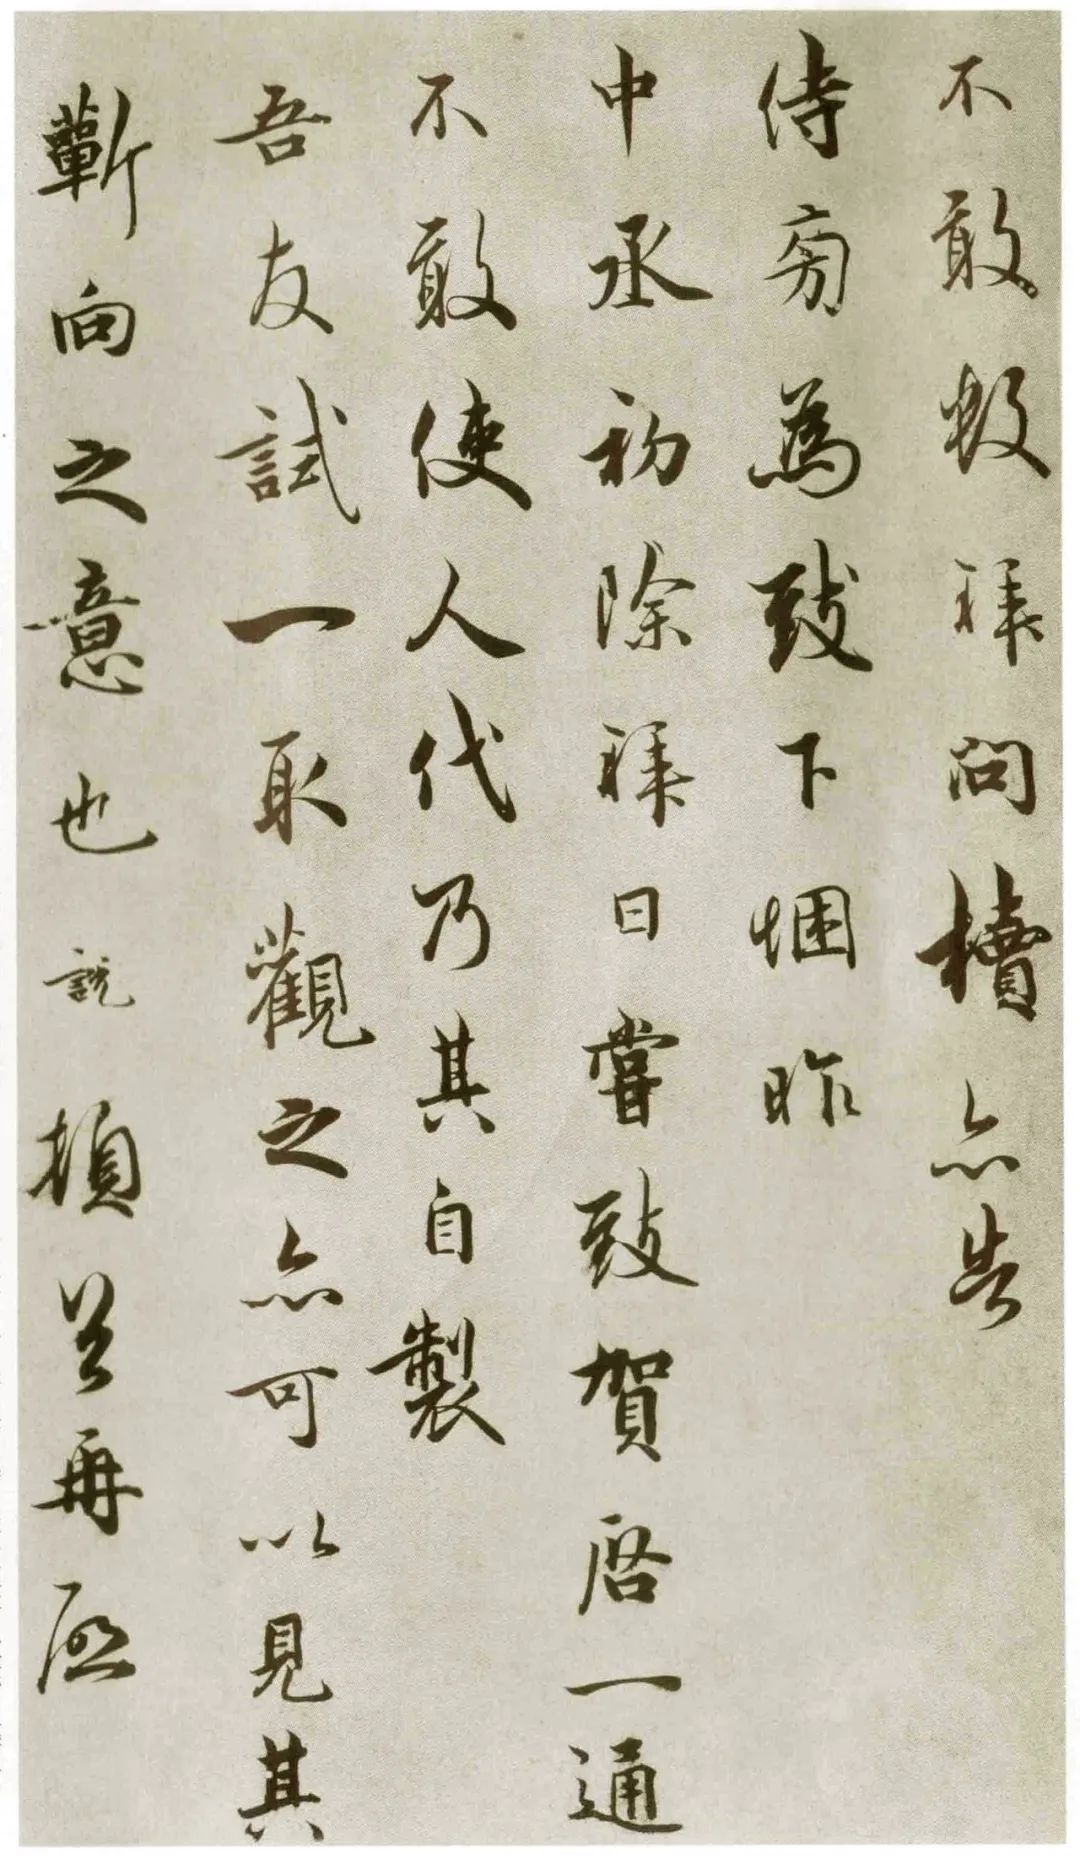 不敢數拜問牘亦告
侍旁為致下悃昨
中丞初除拜日嘗致賀啓一通
不敢使人代乃其自製
吾友試一取觀之亦可以見其
蘄向之意也說頓首再啟